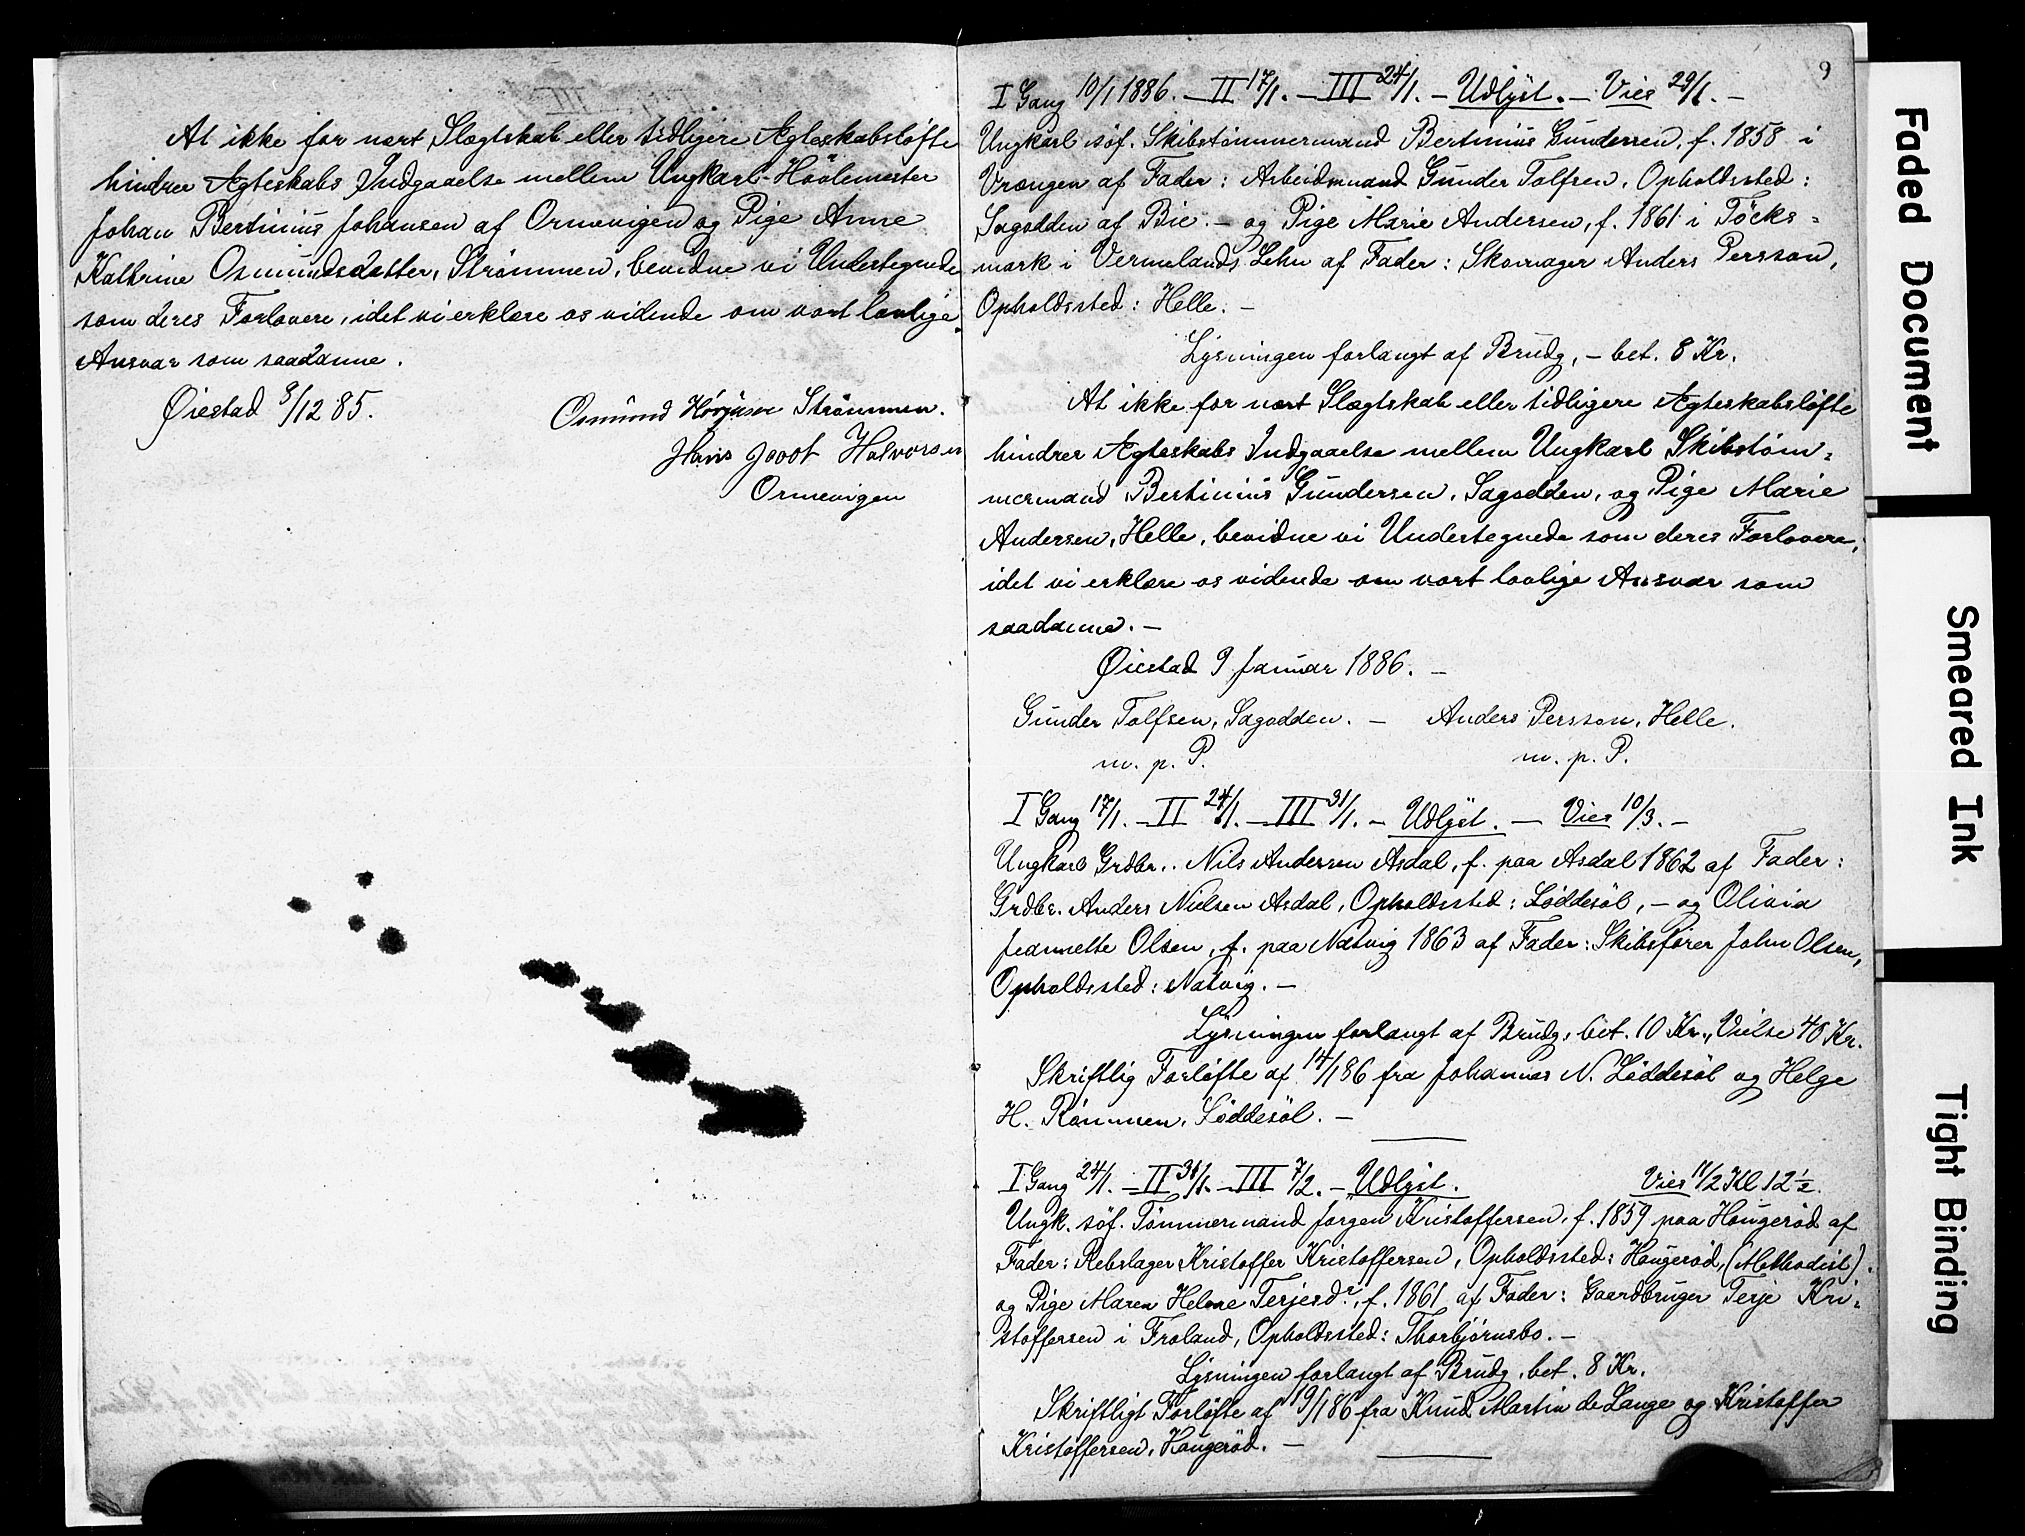 At ikke for nært Slægtskab eller tidligere Ægteskabsløfte
hindrer Ægteskabs Indgaaelse mellem Ungkarl Høvlemester
Johan Bertinius Johansen af Ormevigen og Pige Anne
Kathrine Osmundsdatter, Strømmen, bevidne vi Undertegnede
som deres Forlovere, idet vi erklære os vidende om vort lovlige
Ansvar som saadanne.
Øiestad 9/12 85.
Osmund Strømmen.
Hans Joost Halvorsen
Ormevigen
9
I Gang 10/1 1886. – II 17/1. – III 24/1. – Udlyst. – Vies 29/1. –
Ungkarl søf. Skibstømmermand Bertinius Gundersen, f. 1858 i
Vrængen af Fader: Arbeidsmand Gunder Tolfsen, Opholdssted:
Sagodden af Bie. – og Pige Marie Andersen, f. 1861 i Töcks=
mark i Vermelands Lehn af Fader: Skomager Anders Persson,
Opholdssted: Helle. –
Lysningen forlangt af Brudg, – bet. 8 Kr.
At ikke for nært Slægtskab eller tidligere Ægteskabsløfte
hindrer Ægteskabs Indgaaelse mellem Ungkarl Skibstøm=
mermand Bertinius Gundersen, Sagodden, og Pige Marie
Andersen, Helle, bevidne vi Undertegnede som deres Forlovere,
idet vi erklære os vidende om vort lovlige Ansvar som
saadanne. –
Øiestad 9 Januar 1886. –
Gunder Tolfsen, Sagodden. – Anders Persson, Helle.
m. p. P. m. p. P.
I Gang 17/1. – II 24/1. – III 31/1. – Udlyst. – Vies 10/3. –
Ungkarl Grdbr. Nils Andersen Asdal, f. paa Asdal 1862 af Fader:
Grdbr. Anders Nielsen Asdal, Opholdssted: Løddesøl, – og Olivia
Jeannette Olsen, f. paa Natvig 1863 af Fader: Skibsfører John Olsen,
Opholdssted: Natvig. –
Lysningen forlangt af Brudg, bet. 10 Kr., Vielse 40 Kr.
Skriftlig Forløfte af 14/1 86 fra Johannes N. Løddesøl og Helge
H. Rømmen, Løddesøl. –
I Gang 24/1. – II 31/1. – III 7/2. – Udlyst. Vies 11/2 Kl 12½.
Ungk. søf. Tømmermand Jørgen Kristoffersen, f. 1859 paa Haugerød af
Fader: Rebslager Kristoffer Kristoffersen, Opholdssted: Haugerød, (Methodist).
og Pige Maren Helene Terjesdr, f. 1861 af Fader: Gaardbruger Terje Kri=
stoffersen i Froland, Opholdssted: Thorbjørnsbo. –
Lysningen forlangt af Brudg, bet. 8 Kr.
Skriftligt Forløfte af 19/1 86 fra Knud Martin de Lange og Kristoffer
Kristoffersen, Haugerød. –
Faded Document
Smeared Ink
Tight Binding